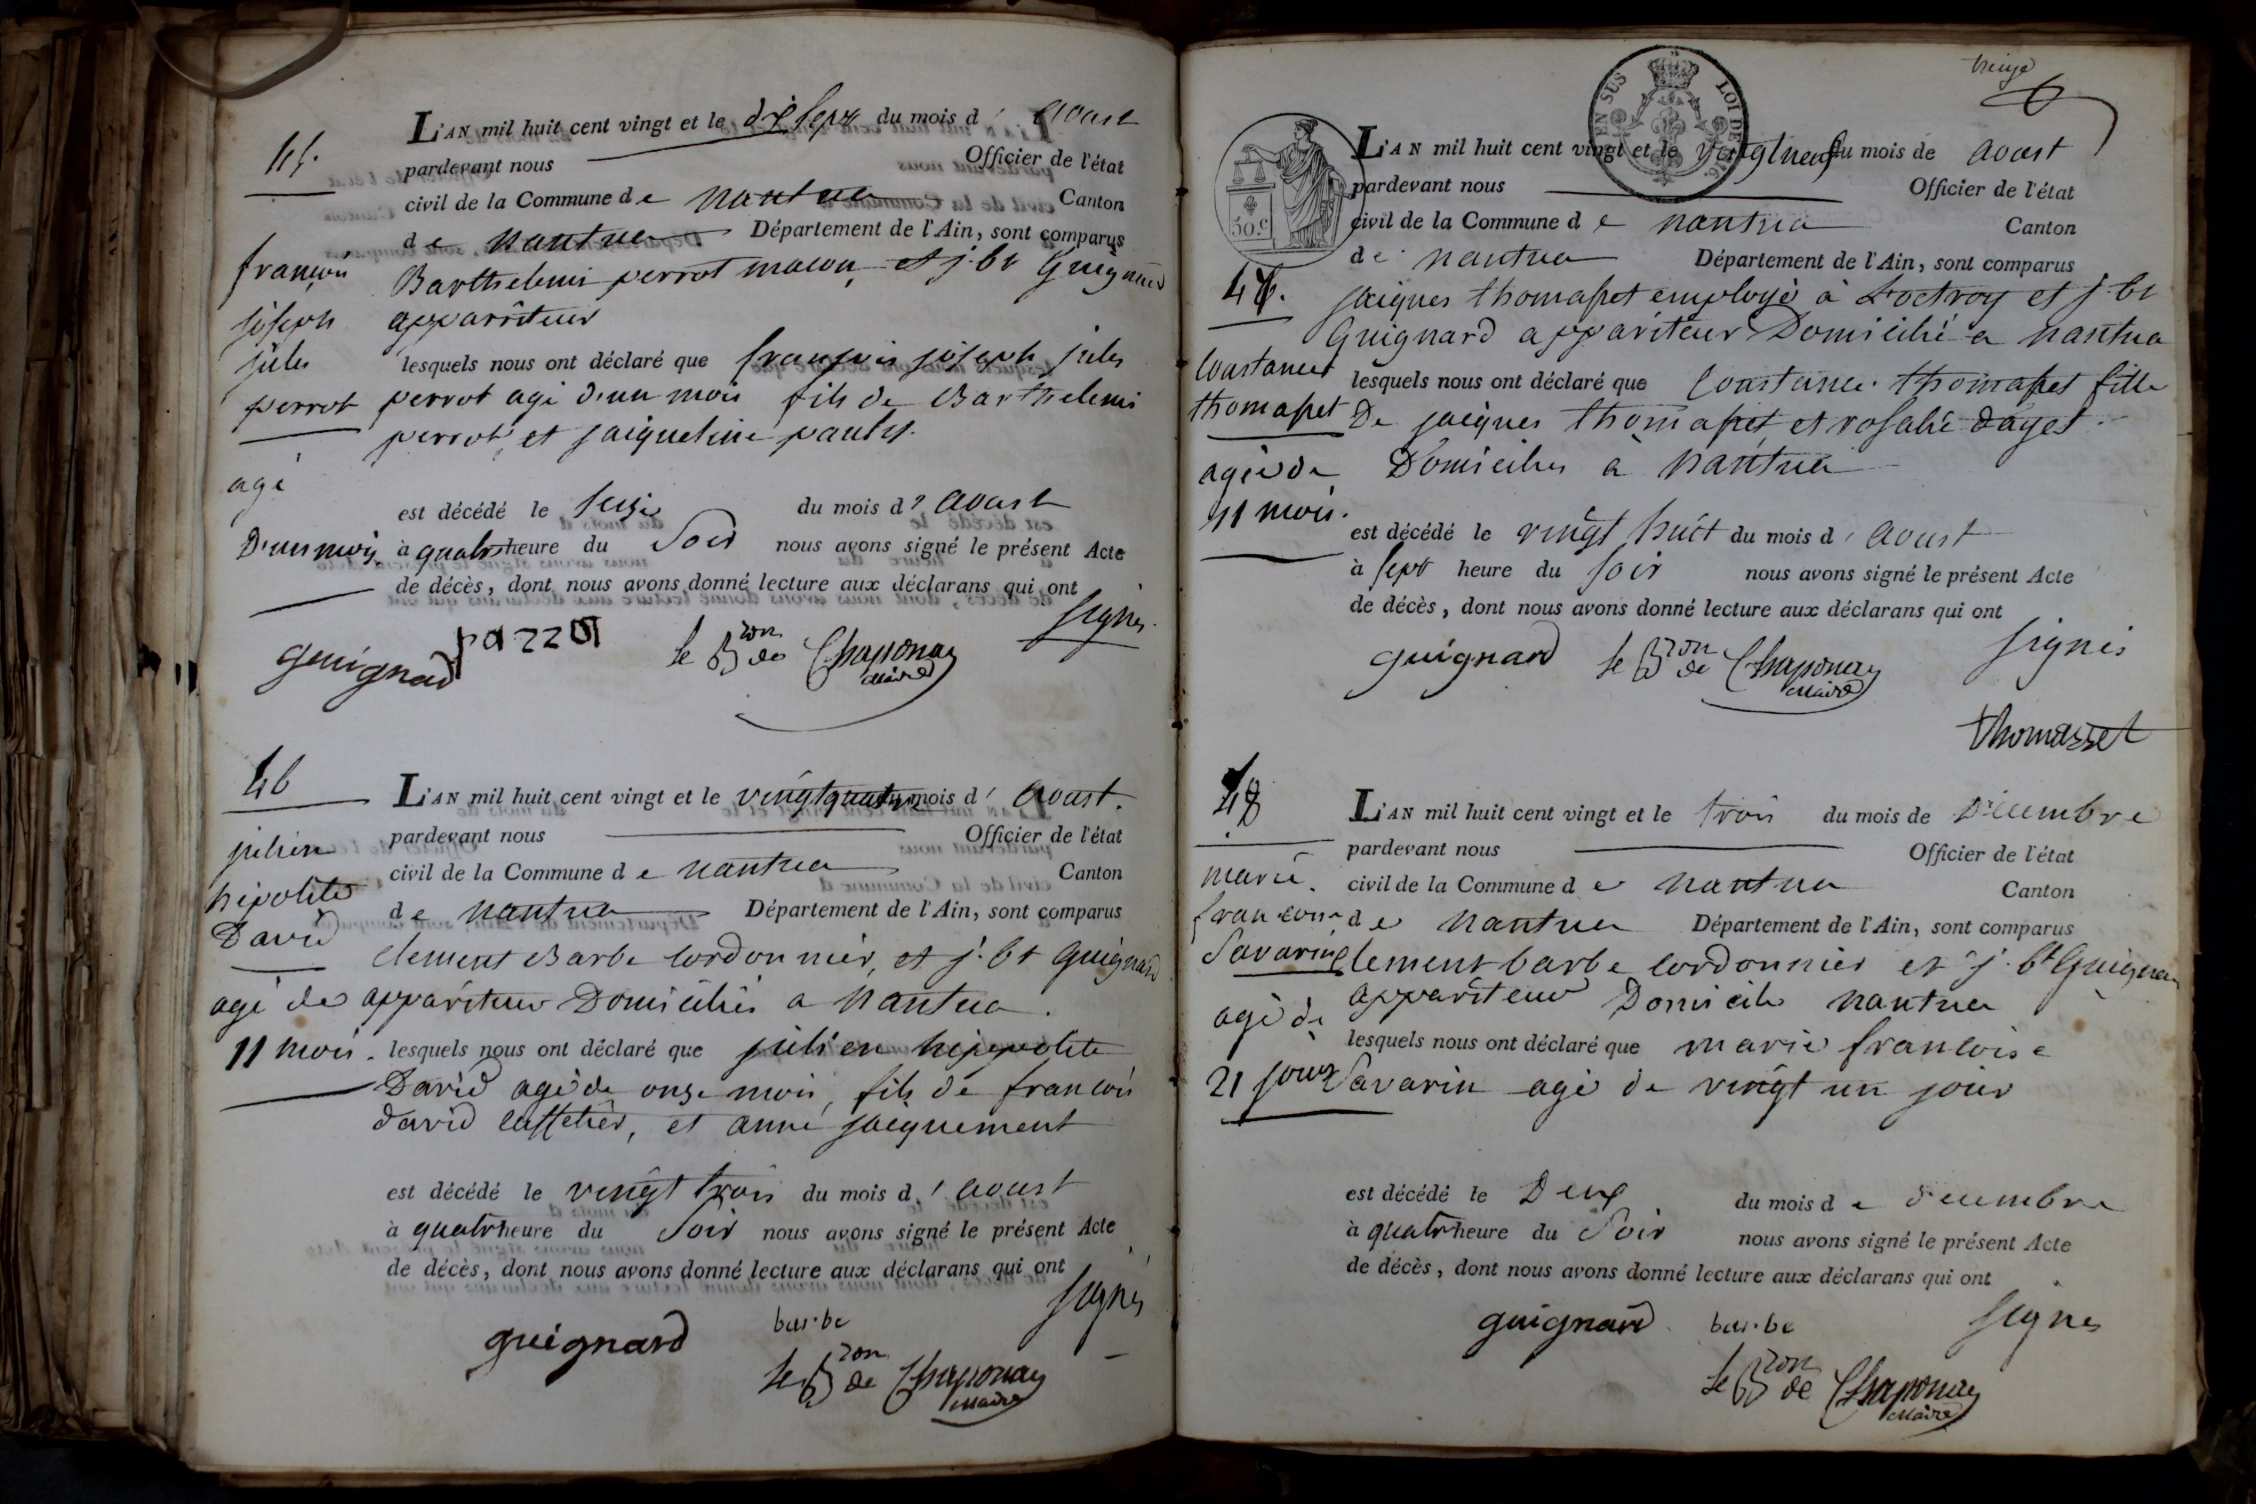 45.
françois
joseph
jules
perrot
agé
D'un mois
L'AN mil huit cent vingt et le dix sept du mois d' aoust
pardevant nous Officier de l'état
civil de la Commune de nantua Canton
de nantua Département de l'Ain, sont comparus
Barthelemi perrot macon et j. bt Guignard
apparriteur
lesquels nous ont déclaré que françois joseph jules
perrot agé d'un mois fils de Barthelemi
perrot, et jaiqueline pauly.
est décédé le seize du mois d' aoust
à quatr heure du Soir nous avons signé le présent Acte
de décès, dont nous avons donné lecture aux déclarans qui ont
signés.
guignard
le Bron de Chaponay
Maire
46
julien
hipolite
David
agé de
11 mois.
L'AN mil huit cent vingt et le vingt quatre du mois d' aoust.
pardevant nous Officier de l'état
civil de la Commune de nantua Canton
de nantua Département de l'Ain, sont comparus
clement Barbe cordonnier, et j. bt guignard
appariteur Domiciliés a Nantua.
lesquels nous ont déclaré que julien hippolite
David agé de onze mois, fils de francois
david caffetier, et anne jaiquement
est décédé le vingt trois du mois d' aoust
à quatr heure du Soir nous avons signé le présent Acte
de décès, dont nous avons donné lecture aux déclarans qui ont
signés
guignard barbe
le Bron de Chaponay
Maire
treize
EN SUS LOI DE 1816
50 c
47.
Constance
thomasset
agée de
11 mois.
L'AN mil huit cent vingt et le vingt neuf du mois de aoust
pardevant nous Officier de l'état
civil de la Commune de nantua Canton
de nantua Département de l'Ain, sont comparus
jaiques thomasset employé à L'octroy et j. bt
Guignard appariteur Domicilié a nantua
lesquels nous ont déclaré que Constance thomasset fille
De jaiques thomasset, et rosalie dayet.
Domiciliés à Nantua
est décédé le vingt huit du mois d' aoust
à sept heure du soir nous avons signé le présent Acte
de décès, dont nous avons donné lecture aux déclarans qui ont
signés
guignard le Bron de Chaponay
Maire
thomasset
48
marie
francoise
Savarin
agé de
21 jours
L'AN mil huit cent vingt et le trois du mois de Décembre
pardevant nous Officier de l'état
civil de la Commune de nantua Canton
de nantua Département de l'Ain, sont comparus
clement barbe cordonnier et j. bt Guignard
appariteur Domicile nantua
lesquels nous ont déclaré que marie francoise
Savarin agé de vingt un jour
est décédé le Deux du mois de décembre
à quatr heure du Soir nous avons signé le présent Acte
de décès, dont nous avons donné lecture aux déclarans qui ont
signés
guignard barbe
le Bron de Chaponay
Maire